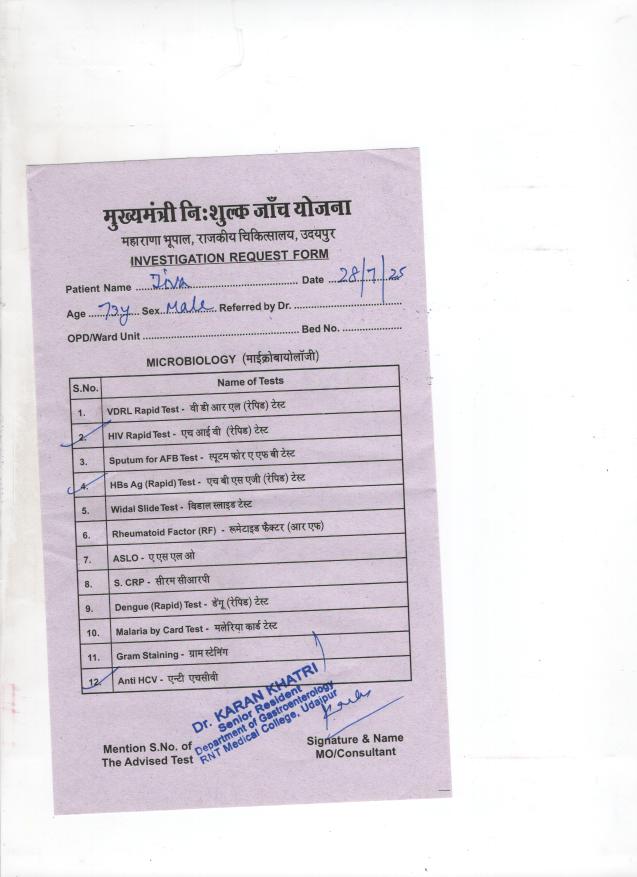 मुख्यमंत्री नि:शुल्क जाँच योजना
महाराणा भूपाल, राजकीय चिकित्सालय, उदयपुर
INVESTIGATION REQUEST FORM
Patient Name ........ Date 28/7/25
Age 73y Sex Male Referred by Dr. ........
OPD/Ward Unit ........ Bed No. ........
MICROBIOLOGY (माईक्रोबायोलॉजी)
S.No. Name of Tests
1. VDRL Rapid Test - वी डी आर एल (रेपिड) टेस्ट
2. HIV Rapid Test - एच आई वी (रेपिड) टेस्ट
3. Sputum for AFB Test - स्पूटम फोर ए एफ बी टेस्ट
4. HBs Ag (Rapid) Test - एच बी एस एजी (रेपिड) टेस्ट
5. Widal Slide Test - विडाल स्लाइड टेस्ट
6. Rheumatoid Factor (RF) - रूमेटाइड फैक्टर (आर एफ)
7. ASLO - ए एस एल ओ
8. S. CRP - सीरम सीआरपी
9. Dengue (Rapid) Test - डेंगू (रेपिड) टेस्ट
10. Malaria by Card Test - मलेरिया कार्ड टेस्ट
11. Gram Staining - ग्राम स्टेनिंग
12. Anti HCV - एन्टी एचसीवी
Dr. KARAN KHATRI
Senior Resident
Department of Gastroenterology
RNT Medical College, Udaipur
Mention S.No. of
The Advised Test
Signature & Name
MO/Consultant